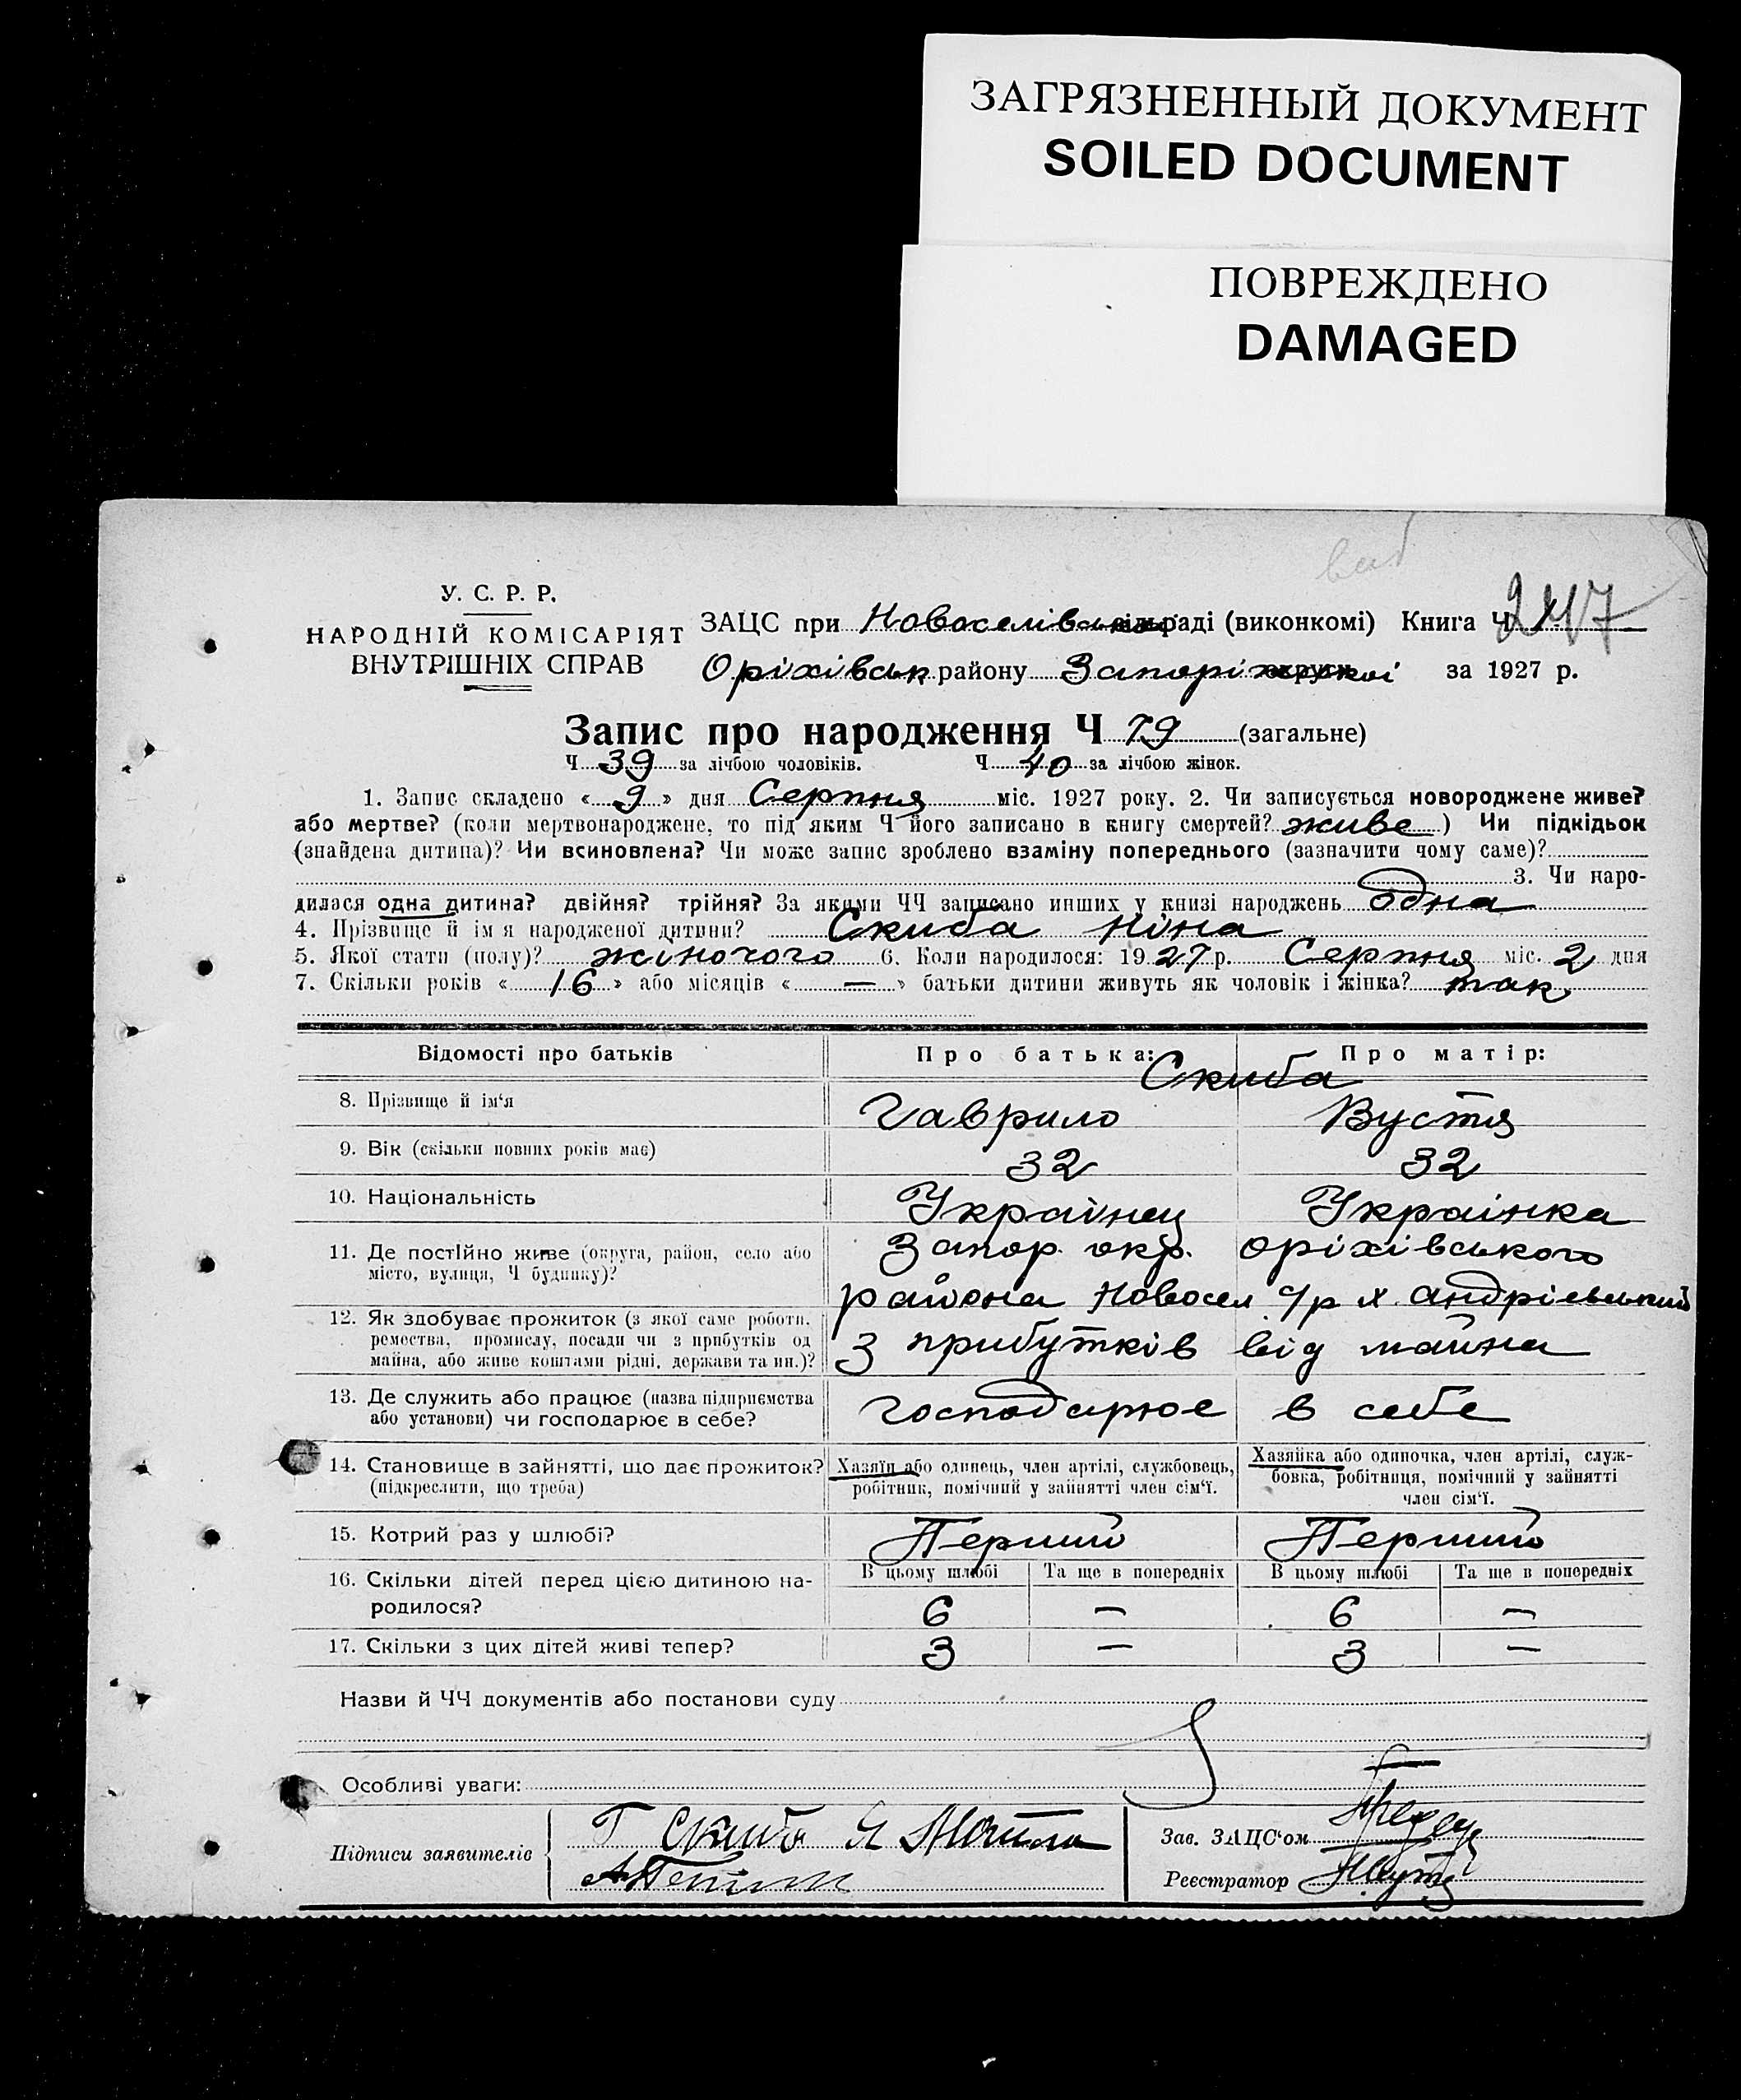 ЗАГРЯЗНЕННЫЙ ДОКУМЕНТ
SOILED DOCUMENT
ПОВРЕЖДЕНО
DAMAGED
У. С. Р. Р.
НАРОДНІЙ КОМІСАРІЯТ
ВНУТРІШНІХ СПРАВ
ЗАЦС при Новоселівській раді (виконкомі) Книга Ч 247
Оріхівськ району Запоріжської округи за 1927 р.
Запис про народження Ч 79 (загальне)
Ч 39 за лічбою чоловіків. Ч 40 за лічбою жінок.
1. Запис складено « 9 » дня Серпня міс. 1927 року. 2. Чи записується новороджене живе?
або мертве? (коли мертвонароджене, то під яким Ч його записано в книгу смертей? живе ) Чи підкідьок
(знайдена дитина)? Чи всиновлена? Чи може запис зроблено взаміну попереднього (зазначити чому саме)?
3. Чи наро-
дилася одна дитина? двійня? трійня? За якими ЧЧ записано инших у книзі народжень одна
4. Прізвище й ім я народженої дитини? Скиба Ніна
5. Якої стати (полу)? жіночого 6. Коли народилося: 1927 р. Серпня міс. 2 дня
7. Скільки років « 16 » або місяців « — » батьки дитини живуть як чоловік і жінка? так
Відомості про батьків Про батька: Про матір:
Скиба
8. Прізвище й ім‘я Гаврило Вустя
9. Вік (скільки повних років має) 32 32
10. Національність Українец Українка
11. Де постійно живе (округа, район, село або Запор. окр. оріхівського
місто, вулиця, Ч будинку)? района Новосел с/р х. андріевський
12. Як здобуває прожиток (з якої саме роботи,
ремества, промислу, посади чи з прибутків од
майна, або живе коштами рідні, держави та ин.)? З прибутків від майна
13. Де служить або працює (назва підприємства
або установи) чи господарює в себе? господарює в себе
14. Становище в зайнятті, що дає прожиток?
(підкреслити, що треба)
Хазяїн або одинець, член артілі, службовець,
робітник, помічний у зайнятті член сім‘ї.
Хазяйка або одиночка, член артілі, служ-
бовка, робітниця, помічний у зайнятті
член сім‘ї.
15. Котрий раз у шлюбі? Перший Перший
16. Скільки дітей перед цією дитиною на-
родилося?
В цьому шлюбі Та ще в попередніх В цьому шлюбі Та ще в попередніх
6 — 6 —
17. Скільки з цих дітей живі тепер? 3 — 3 —
Назви й ЧЧ документів або постанови суду
Особливі уваги:
Підписи заявителів
Г Скиба
Зав. ЗАЦС‘ом
Реєстратор